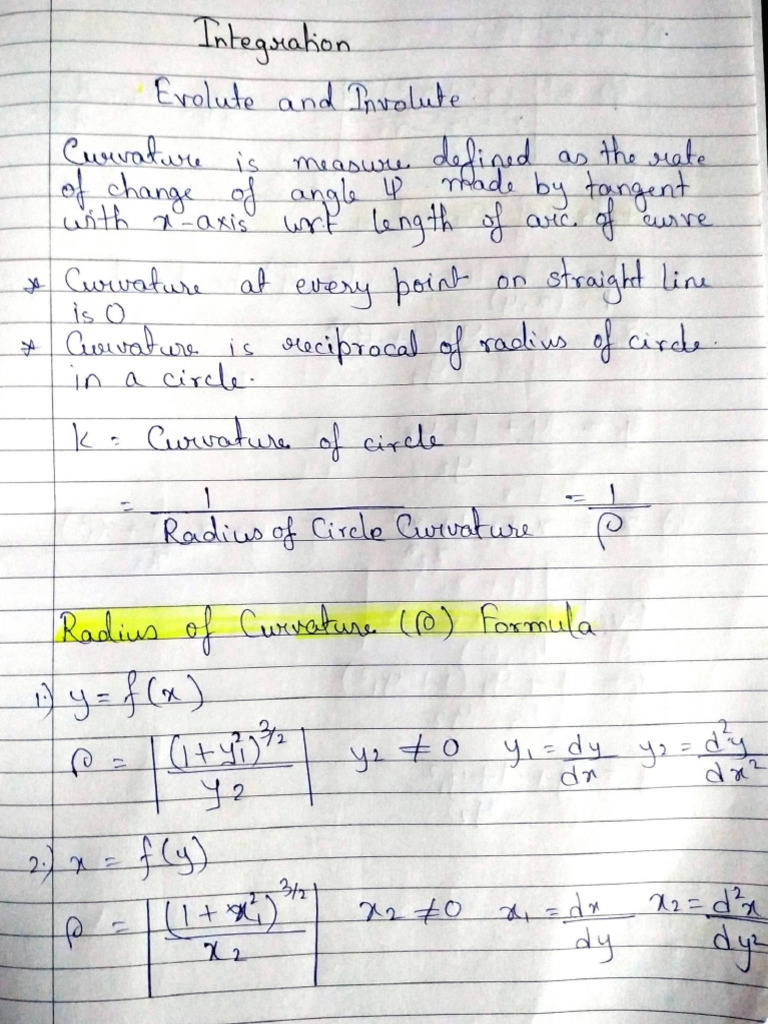 Integration
Evolute and Involute
Curvature is measure defined as the rate
of change of angle ψ made by tangent
with x-axis wrt length of arc of curve
* Curvature at every point on straight line
is 0
* Curvature is reciprocal of radius of circle.
in a circle.
K = Curvature of circle
= 1 / Radius of Circle Curvature = 1 / ρ
Radius of Curvature (ρ) Formula
1.) y = f(x)
ρ = | (1 + y₁²)^3/2 / y₂ | y₂ ≠ 0 y₁ = dy/dx y₂ = d²y/dx²
2.) x = f(y)
ρ = | (1 + x₁²)^3/2 / x₂ | x₂ ≠ 0 x₁ = dx/dy x₂ = d²x/dy²